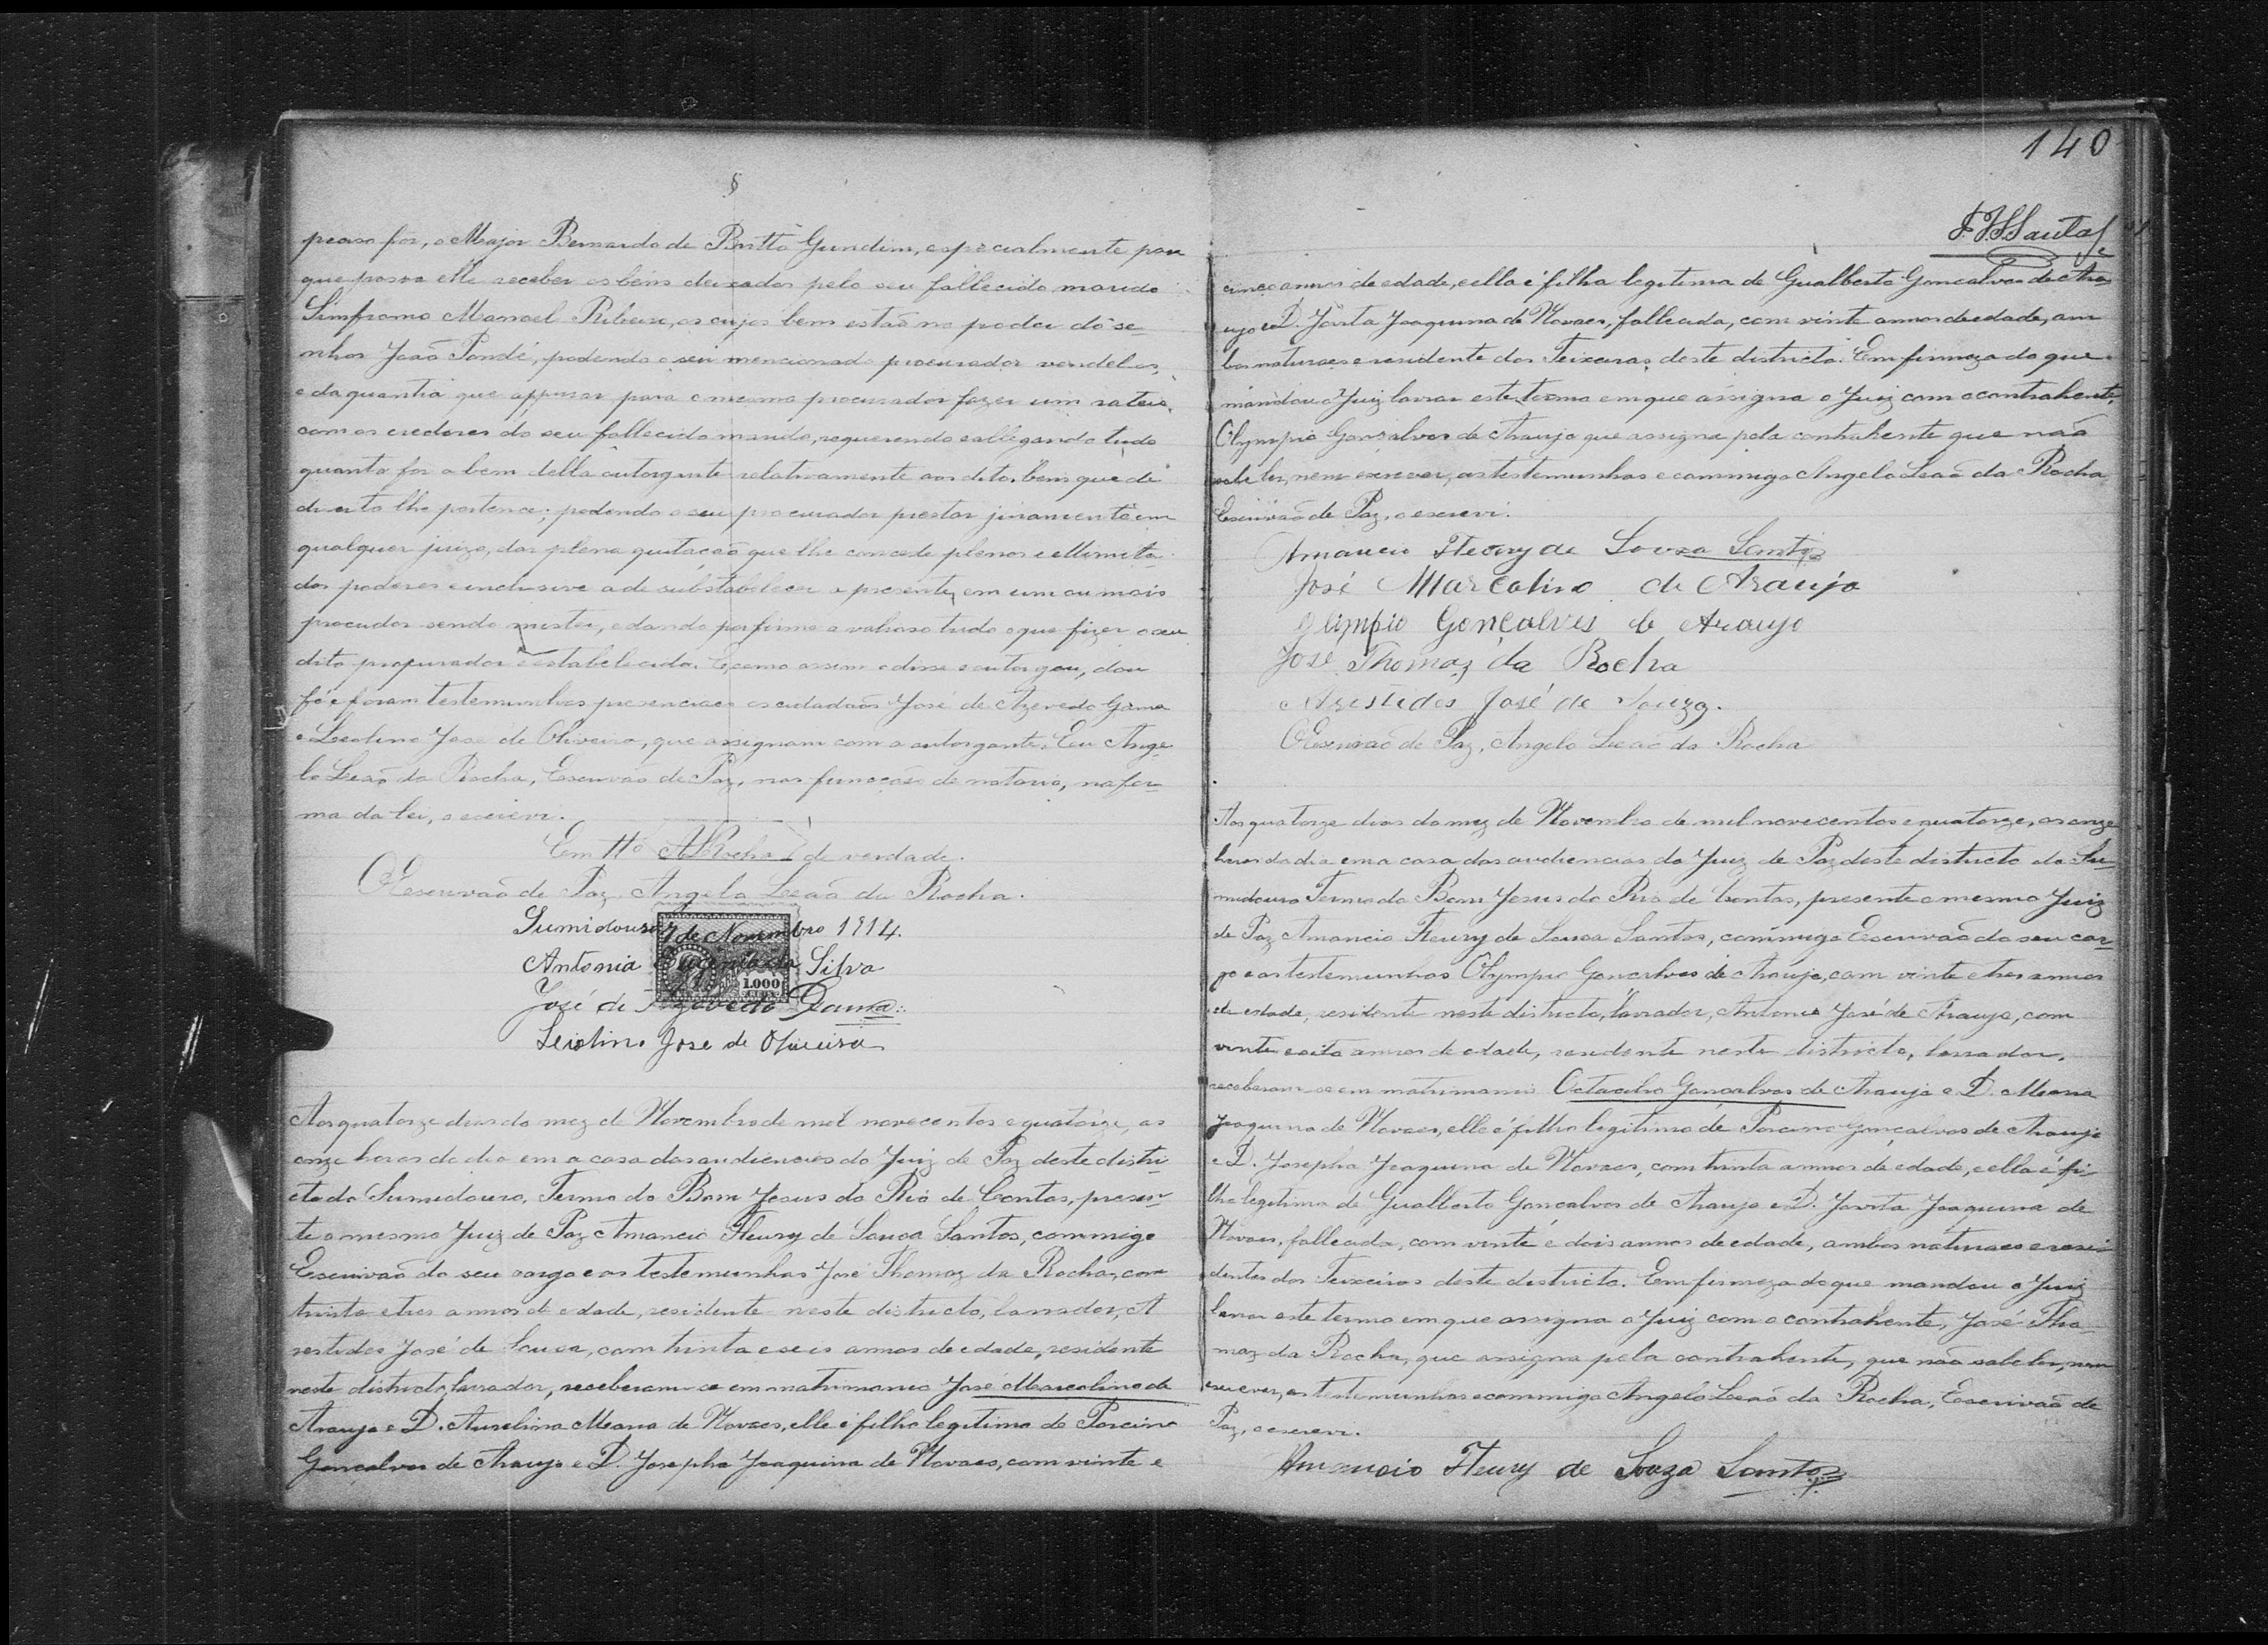 preciso fôr, o Major Bernardo de Britto Gundim, especialmente para
que possa elle receber os bens deixados pelo seu fallecido marido
Simfronio Manoel Ribeiro, os cujos bem estão no poder do se
nhor João Pondé, podendo o seu mencionado procurador vendel os,
e da quantia que appurar para o mesmo procurador fazer um rateio,
com os credores do seu fallecido marido, requerendo e allegando tudo
quanto for a bem della outorgante relativamente aos dito bens que de
direito lhe pertence; podendo o seu procurador prestar juramento em
qualquer juizo, dar plena quitação que lhe concede plenos e illimita-
dos poderes e inclusive a de substabelecer a presente, em um ou mais
procudor sendo mister, e dando por firme e valioso tudo o que fizer o seu
dito procurador e estabelecido. E como assim o disse e outorgou, dou
fé e foram testemunhas presenciaes os cidadãos José de Azevedo Gama
e Leolino José de Oliveira, que assignam com a outorgante. Eu Ange-
lo Leão da Rocha, Escrivão de Paz, nas funcções de notario, na for-
ma da lei, o escrevi.
Em tt.º ALRocha de verdade.
O Escrivão de Paz, Angelo Leão da Rocha.
Sumidouro 7 de Novembro 1914.
Antonia da Silva
1.000
José de Azevedo Gama
Leiolino Jose de Oliveira
Aos quatorze dias do mez de Novembro de mil novecentos e quatorze, as
onze horas do dia em a casa das audiencias do Juiz de Paz deste distri-
cto do Sumidouro, Termo do Bom Jesus do Rio de Contas, presen-
te o mesmo Juiz de Paz Amancio Fleury de Sousa Santos, commigo
Escrivão do seu cargo e as testemunhas José Thomaz da Rocha, com
trinta e tres annos de edade, residente neste districto, lavrador, A
restides José de Sousa, com trinta e seis annos de edade, residente
neste districto, lavrador, receberam-se em matrimonio José Marcolino de
Araujo e D. Aurelina Maria de Novaes, elle é filho legitimo de Porcino
Gonçalves de Araujo e D. Josepha Joaquina de Novaes, com vinte e
140
cinco annos de edade, e ella é filha legitima de Gualberto Gonçalves de Ara
ujo e D. Jovita Joaquina de Novaes, fallecida, com vinte annos de edade, am
bos naturaes e residente dos Teixeiras, deste districto. Em firmeza do que
mandou o Juiz lavrar este termo em que assigna o Juiz com o contrahente,
Olympio Gonçalves de Araujo que assigna pela contrahente que não
sabe ler, nem escrever, as testemunhas e commigo Angelo Leão da Rocha
Escrivão de Paz, o escrevi.
Amancio Fleury de Souza Santos
José Marcolino de Araujo
Olimpio Gonçalves de Araujo
José Thomaz da Rocha
Arestides José de Souza.
O Escrivão de Paz, Angelo Leão da Rocha
Aos quatorze dias do mez de Novembro de mil novecentos e quatorze, as onze
horas do dia em a casa das audiencias do Juiz de Paz deste districto do Su-
midouro Termo do Bom Jesus do Rio de Contas, presente o mesmo Juiz
de Paz Amancio Fleury de Sousa Santos, commigo Escrivão do seu car-
go e as testemunhas Olympio Gonçalves de Araujo, com vinte e tres annos
de edade, residente neste districto, lavrador, Antonio José de Araujo, com
vinte e oito annos de edade, residente neste districto, lavrador,
receberam-se em matrimonio Octacilio Gonçalves de Araujo e D. Maria
Joaquina de Novaes, elle é filho legitimo de Porcino Gonçalves de Araujo
e D. Josepha Joaquina de Novaes, com trinta annos de edade, e ella é fi-
lha legitima de Gualberto Gonçalves de Araujo e D. Jovita Joaquina de
Novaes, fallecida, com vinte e dois annos de edade, ambos naturaes e resi-
dentes dos Teixeiras deste districto. Em firmeza do que mandou o Juiz
lavrar este termo em que assigna o Juiz com o contrahente, José Tho-
maz da Rocha, que assigna pela contrahente, que não sabe ler, nem
escrever, as testemunhas e commigo Angelo Leão da Rocha, Escrivão de
Paz, o escrevi.
Amancio Fleury de Souza Santos